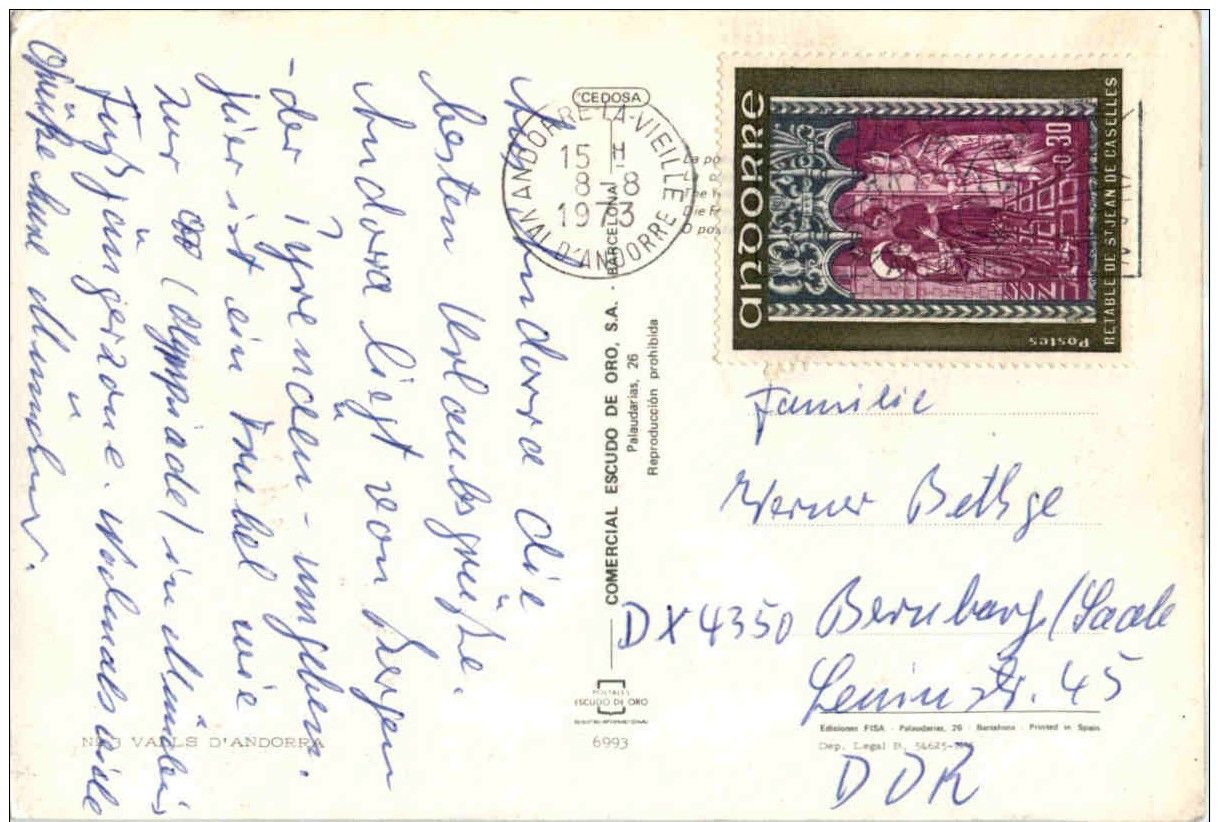 Aus Andorra die
besten Urlaubsgrüße.
Andorra liegt von Bergen
- der Pyrenäen - umgeben.
Hier ist ein Trubel wie
zur (Olympiade) in München
Fußgängerzone. Nochmals viele
Grüße Eure Münchner.
CEDOSA
ANDORRE-LA-VIEILLE
15 H
8 - 8
1973
VAL D'ANDORRE
La po
The
Die
O pos
andorre
0,30
Postes
RETABLE DE ST JEAN DE CASELLES
COMERCIAL ESCUDO DE ORO, S.A. · BARCELONA
Palaudarias, 26
Reproducción prohibida
Familie
Werner Bethge
DX 4350 Bernburg/Saale
Leninstr. 45
DDR
POSTALES
ESCUDO DE ORO
6993
VALLS D'ANDORRA
Ediciones FISA - Palaudarias, 26 - Barcelona - Printed in Spain
Dep. Legal B. 54625-